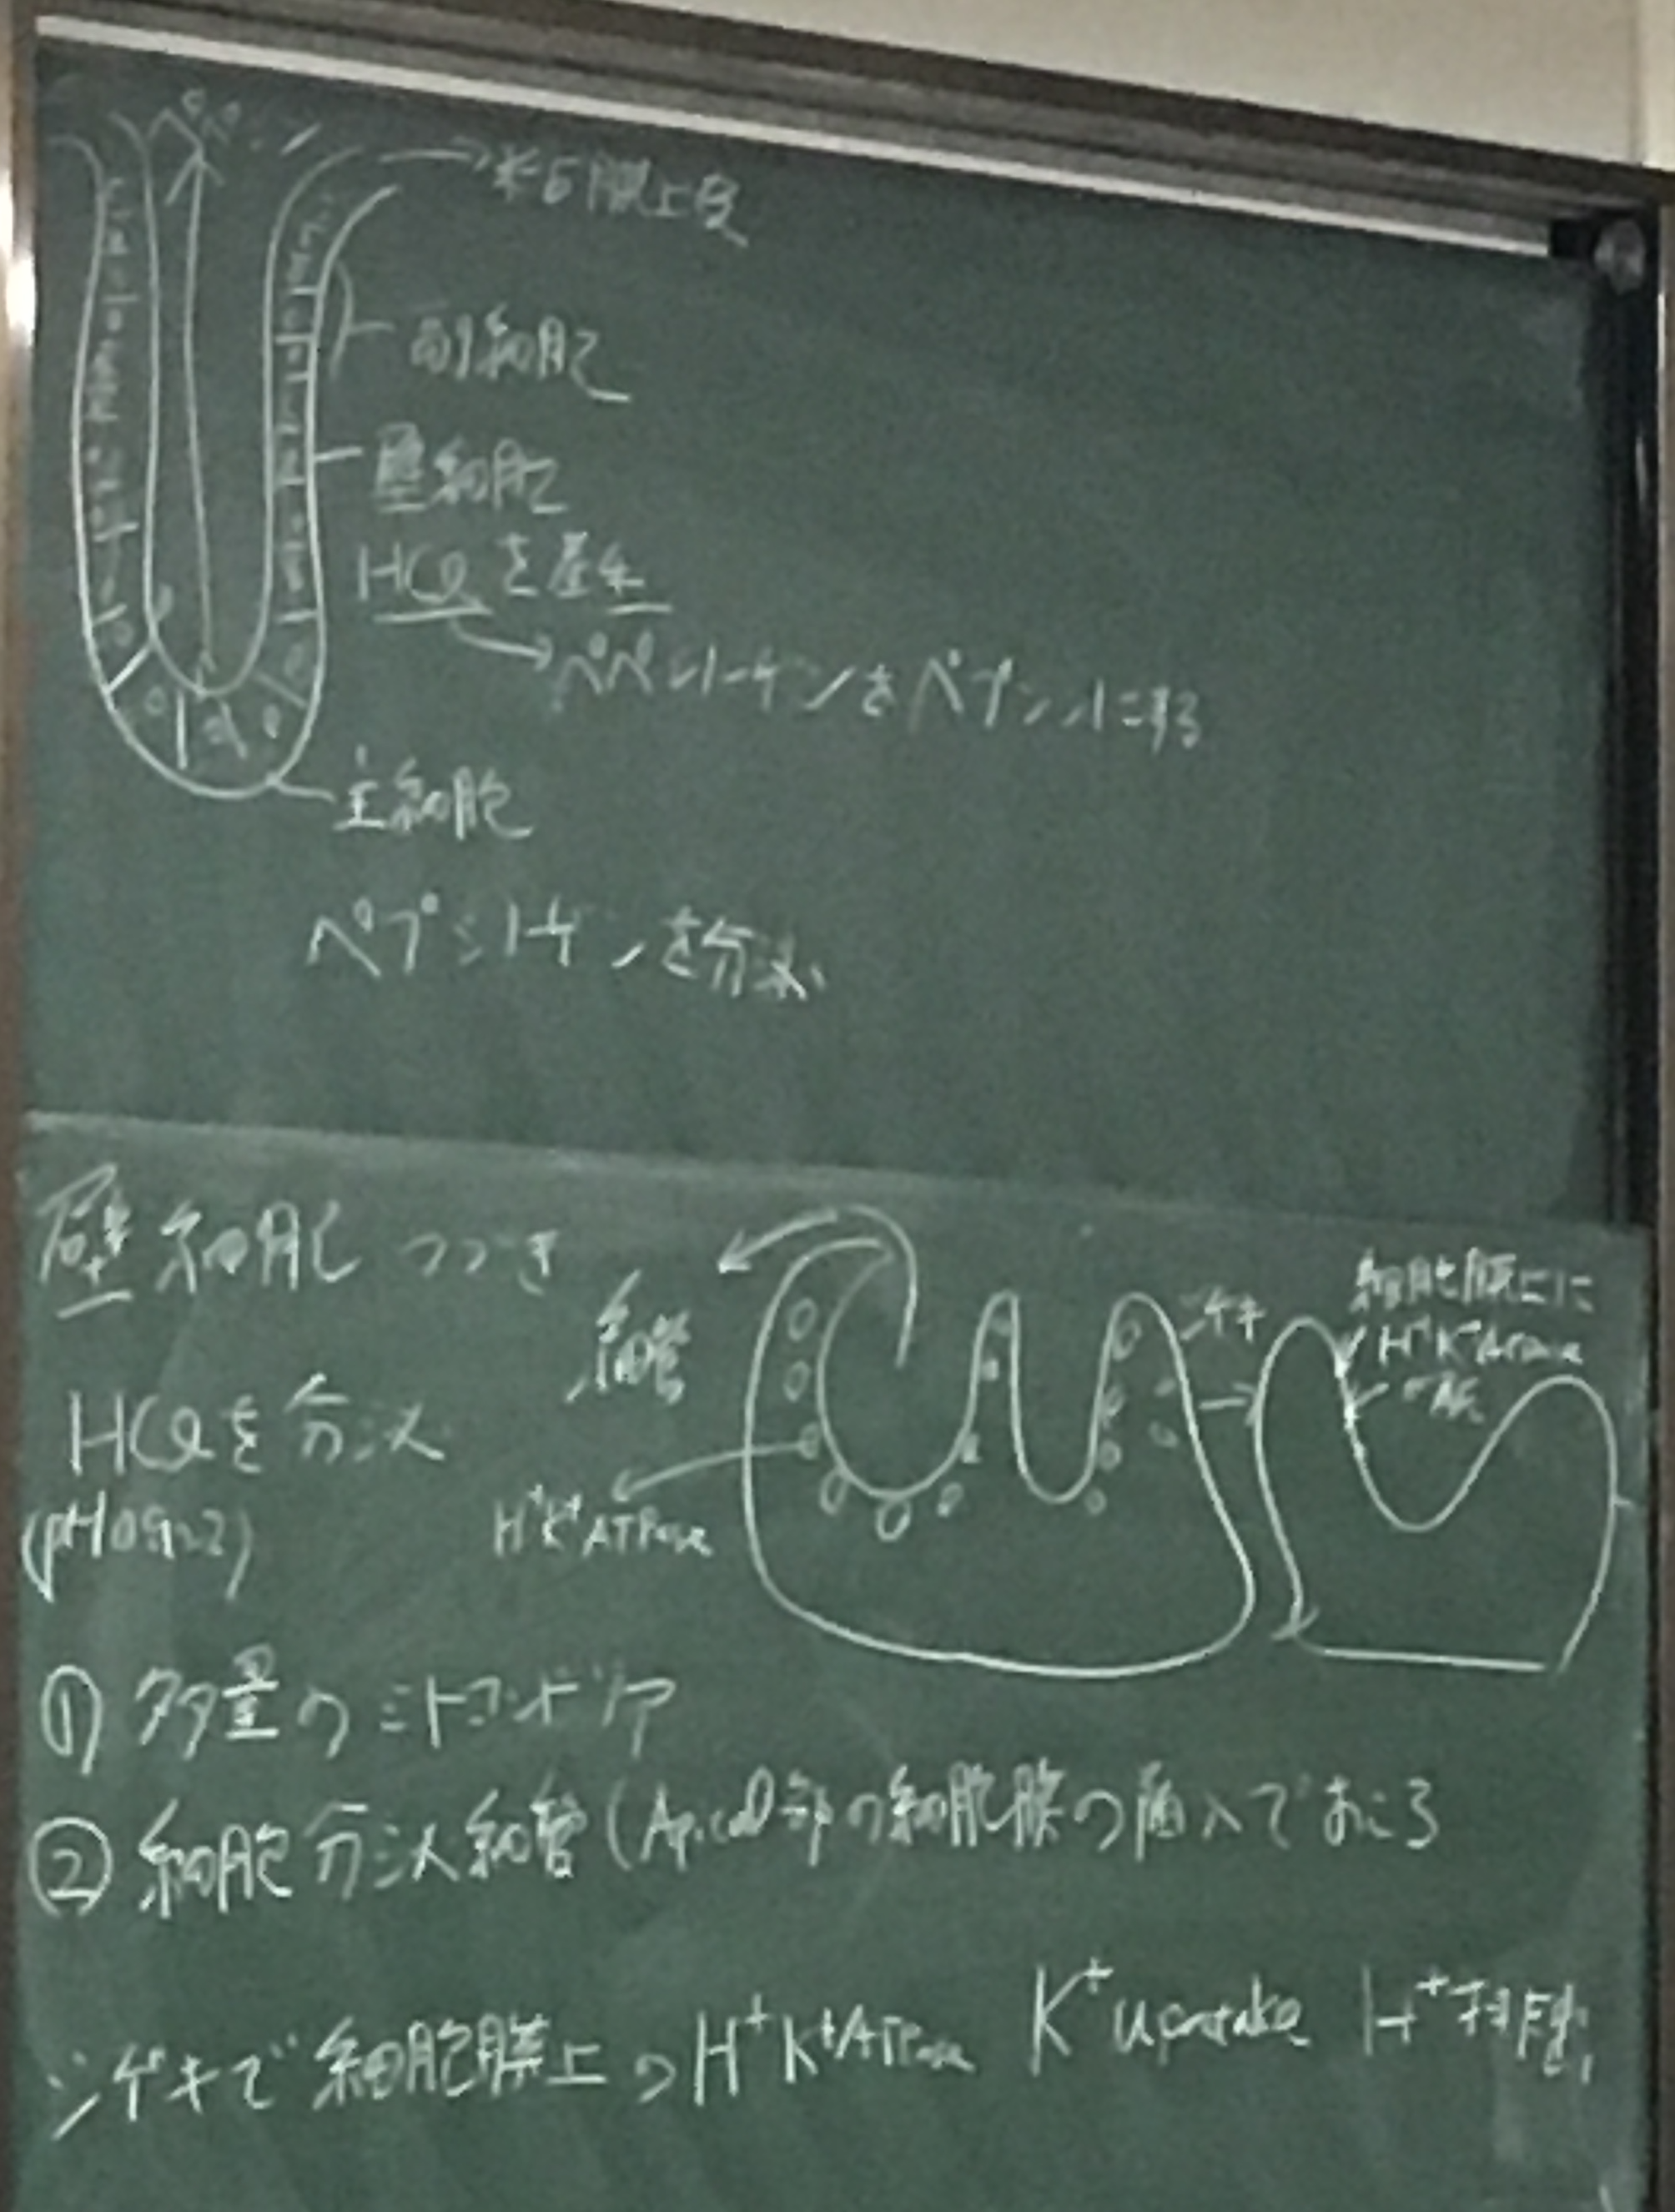 →粘膜上皮
副細胞
壁細胞
HClを産生
→ペペシノーゲンをペプシンにする
主細胞
ペプシノーゲンを分泌
壁細胞つづき
HClを分泌
細管
シゲキ
細胞膜上に
H⁺K⁺ATPase
H⁺K⁺ATPase
①多量のミトコンドリア
②細胞分泌細管(Apical部の細胞膜の陥入でおこる
シゲキで細胞膜上のH⁺K⁺ATPase K⁺uptake H⁺排出